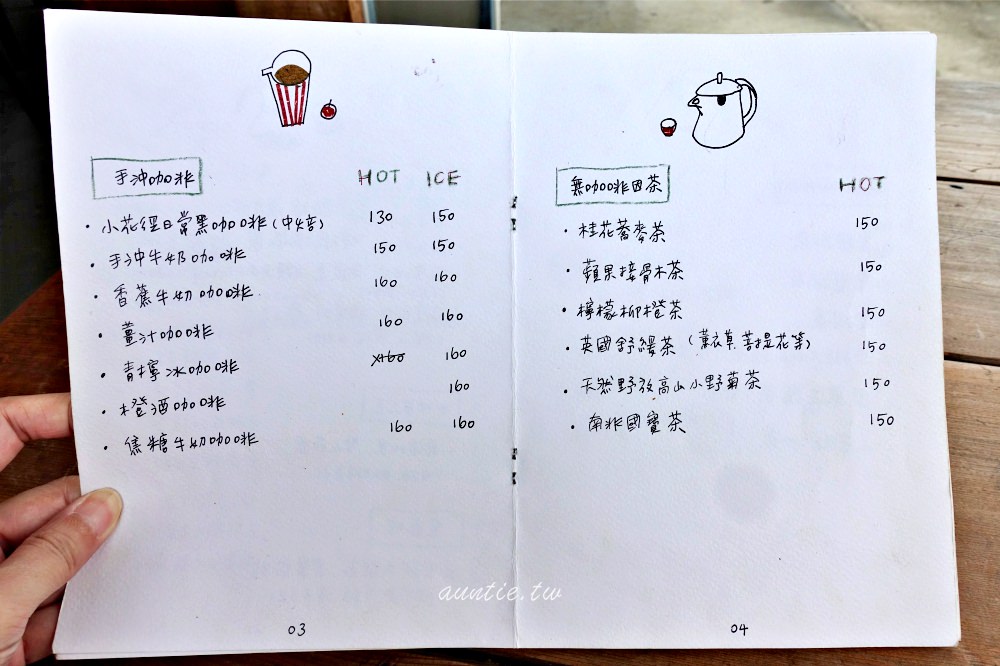 手沖咖啡 HOT ICE
・小花徑日常黑咖啡(中焙) 130 150
・手沖牛奶咖啡 150 150
・香蕉牛奶咖啡 160 160
・薑汁咖啡 160 160
・青檸冰咖啡 160 160
・橙酒咖啡 160
・焦糖牛奶咖啡 160 160
03
無咖啡因茶 HOT
・桂花蕎麥茶 150
・蘋果接骨木茶 150
・檸檬柳橙茶 150
・英國舒緩茶(薰衣草菩提花等) 150
・天然野放高山小野菊茶 150
・南非國寶茶 150
04
auntie.tw